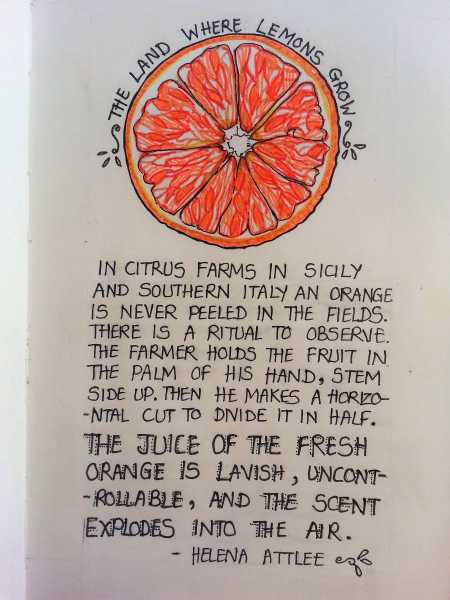 THE LAND WHERE LEMONS GROW
IN CITRUS FARMS IN SICILY
AND SOUTHERN ITALY AN ORANGE
IS NEVER PEELED IN THE FIELDS.
THERE IS A RITUAL TO OBSERVE.
THE FARMER HOLDS THE FRUIT IN
THE PALM OF HIS HAND, STEM
SIDE UP. THEN HE MAKES A HORIZO-
-NTAL CUT TO DIVIDE IT IN HALF.
THE JUICE OF THE FRESH
ORANGE IS LAVISH, UNCONT-
-ROLLABLE, AND THE SCENT
EXPLODES INTO THE AIR.
- HELENA ATTLEE